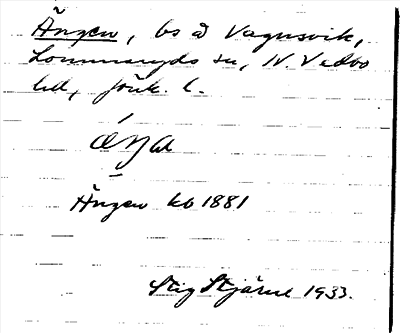 Ängen, bs å Vagnsvik,
Lommaryds sn, N. Vedbo
hd, Jönk. l.
áŋa
Ängen kb 1881
Stig Stjärne 1933.